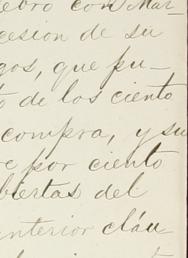 ebro con Mar-
cesion de su
gos, que pu-
o de los ciento
compra, y su
e por ciento
biertas del
anterior cláu